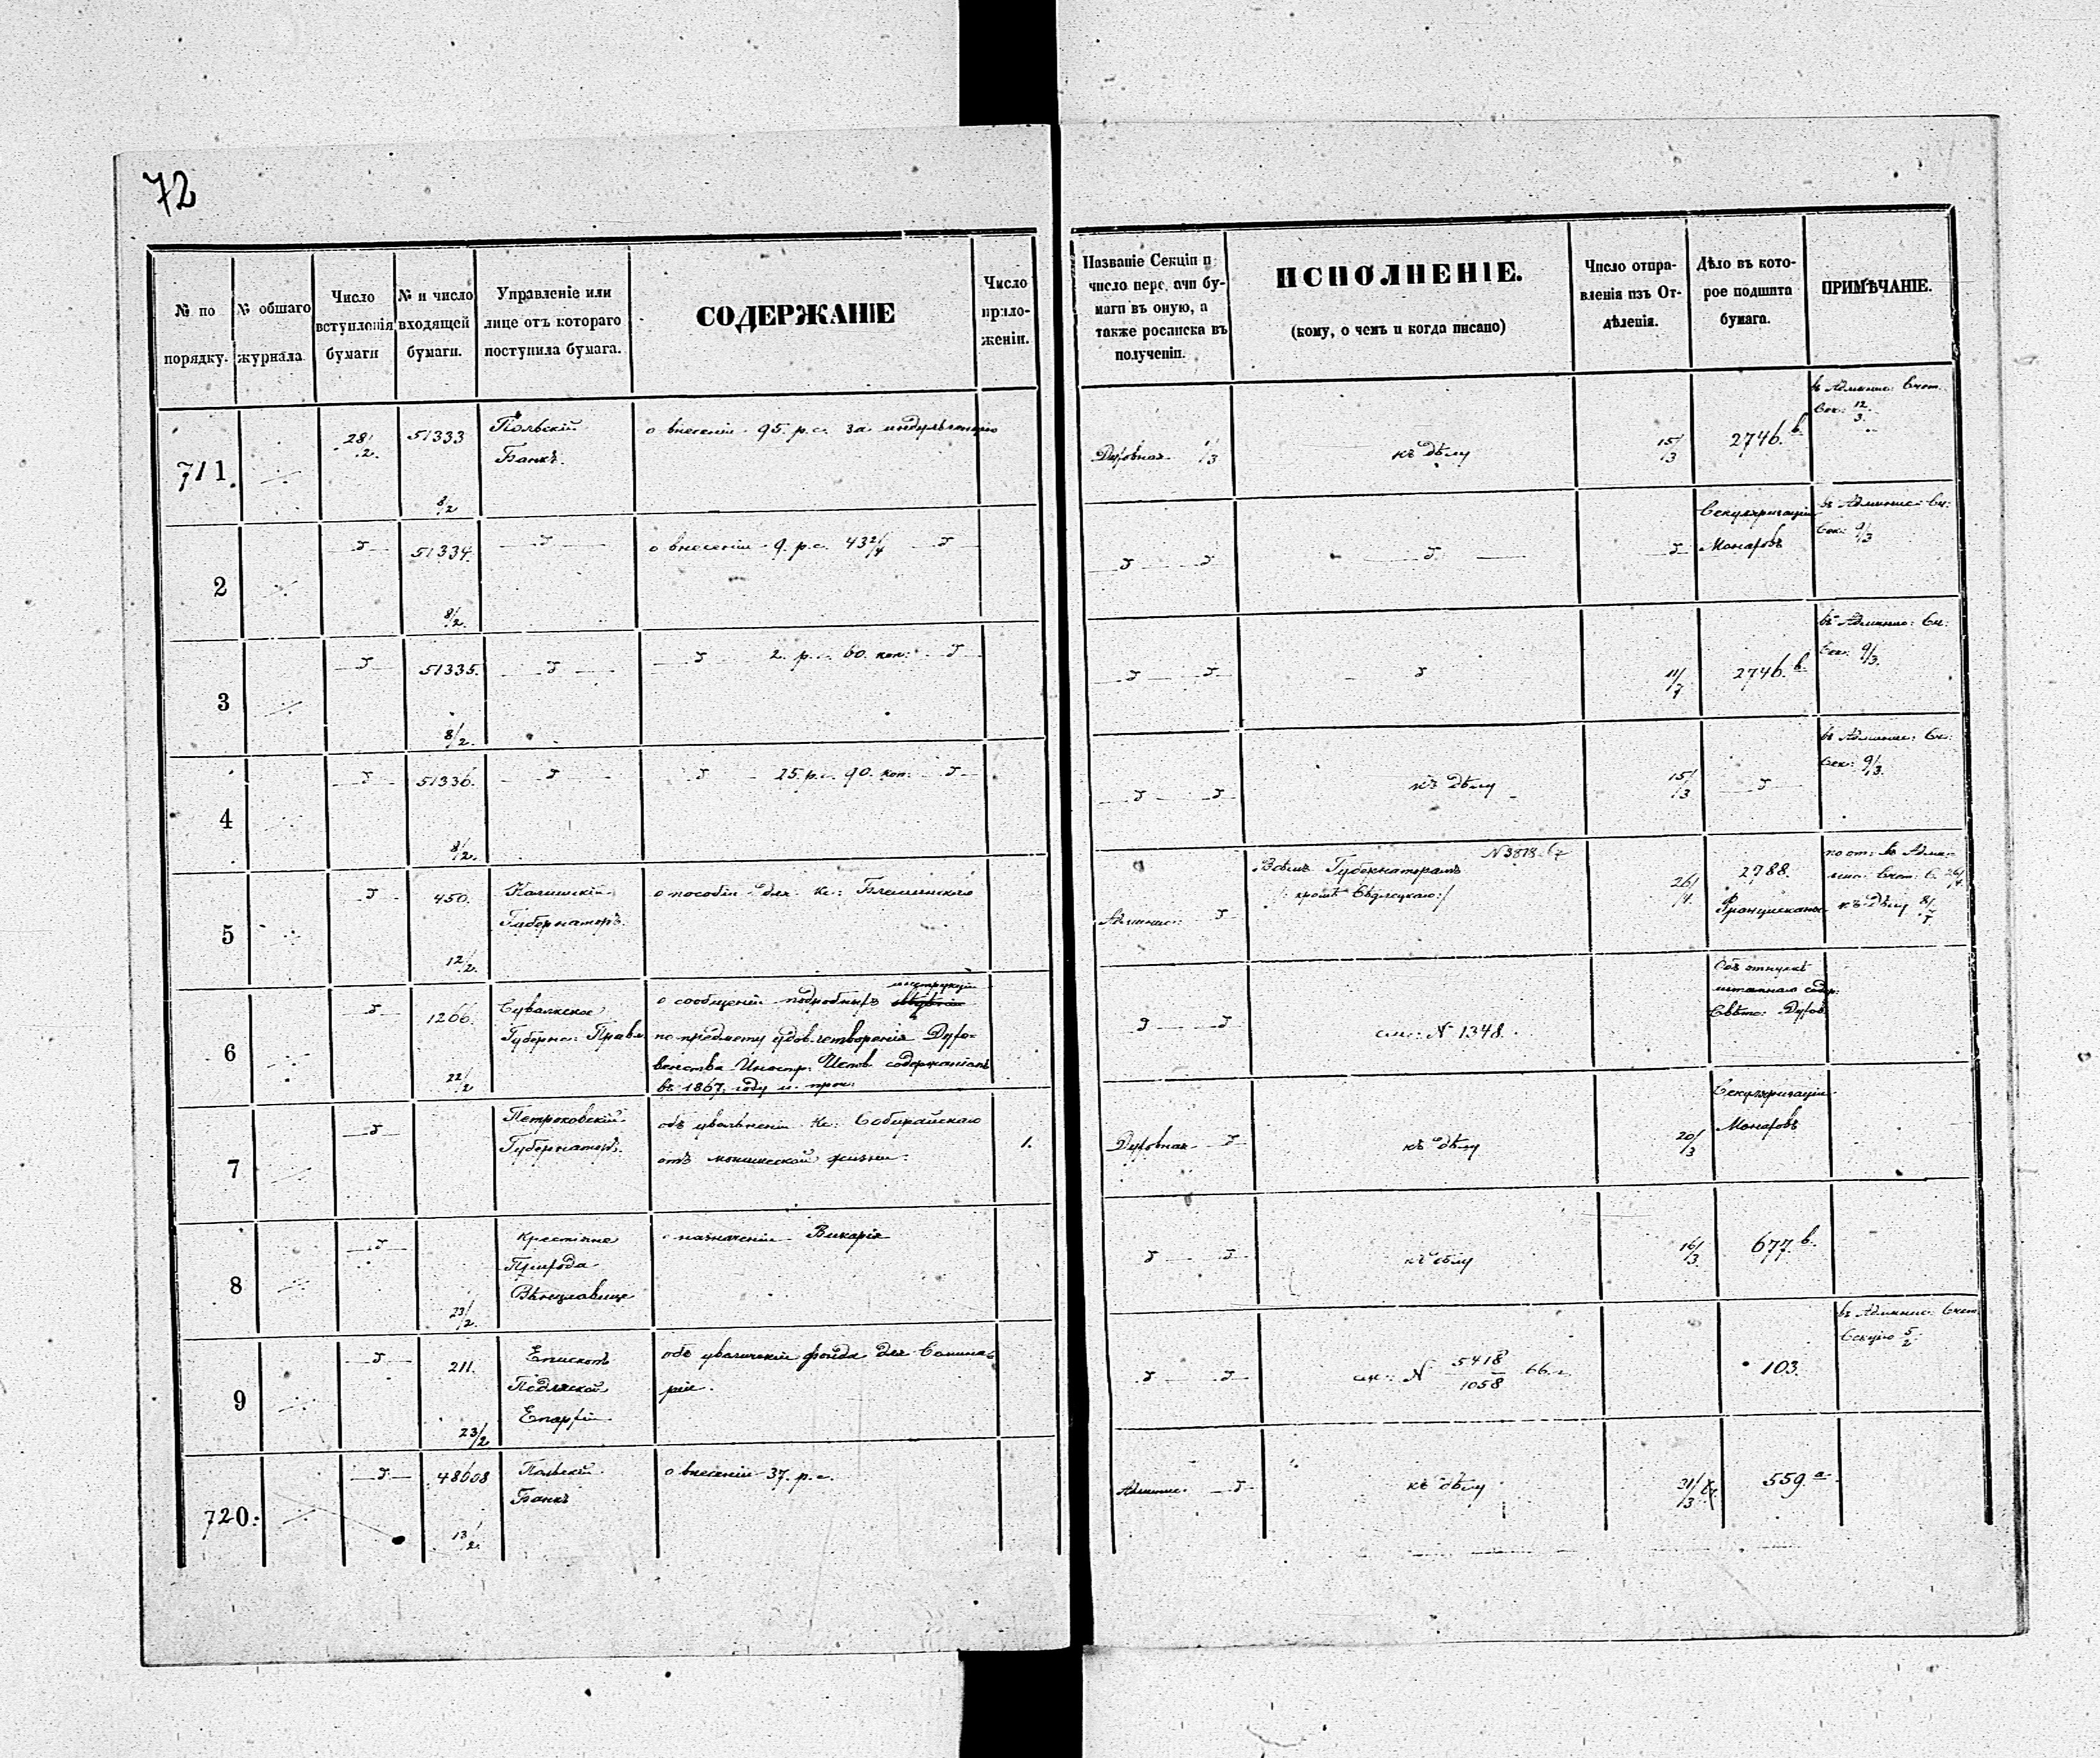 72
№ по порядку.
№ общаго журнала.
Число вступленія бумаги
№ и число входящей бумаги.
Управленіе или лице отъ котораго поступила бумага.
СОДЕРЖАНІЕ
Число приложеніи.
Названіе Секціи и число передачи бумаги въ оную, а также росписка въ полученіи.
ИСПОЛНЕНІЕ.
(кому, о чемъ и когда писано)
Число отправленія изъ Отдѣленія.
Дѣло въ которое подшита бумага.
ПРИМѢЧАНІЕ.
711.
28/2.
51333
8/2
Польскій
Банкъ.
о внесеніи 95. р.с. за
Духовная 1/3
къ дѣлу
15/3
2746. в.
въ Админис: Счет.
Сек: 12/3.
2
51334.
8/2.
о внесеніи 9. р.с. 43 2/4
Секуляризаціи
Монаховъ
въ Админис: Сч:
Сек: 9/3
3
51335.
8/2.
2. р.с. 60. коп:
11/7
2746. в.
въ Админис: Сч:
Сек: 9/3.
4
51336.
8/2.
25 р.с. 90. коп:
къ дѣлу
15/3
въ Админис: Сч:
Сек: 9/3.
5
450.
12/2.
Калишскій
Губернаторъ.
о пособіи для кс:
Админис:
№ 3878
Всѣмъ Губернаторамъ
/: кромѣ Сѣдлецкаго :/
26/4.
2788.
Францискане
къ дѣлу
6
1206.
22/2
Сувалкское
Губернс: Правл.
инструкціи
о сообщеніи подробныхъ
по предмету удовлетворенія Духо-
венства Иностр: Испов. содержаніемъ
въ 1867. году и проч:
см: № 1348.
Объ отпускѣ
штатнаго содер:
Свѣтс: Духов.
7
Петроковскій
Губернаторъ.
объ увольненіи Кс: Собирайскаго
отъ монашеской жизни.
1.
Духовная
къ дѣлу
20/3
Секуляризаціи
Монаховъ
8
23/2.
крестьяне
Прихода
о назначеніи Викарія
къ дѣлу
16/3
677. в.
9
211.
23/2
Епископъ
Подляской
Епархіи
объ увеличеніи фонда для Семина-
ріи.
см: № 5418/1058 66. г.
103.
въ Админис: Счет.
Секцію 5/2
720.
48608
13/2.
Польскій
Банкъ
о внесеніи 37. р.с.
Админис.
къ дѣлу
31/3
559. а.